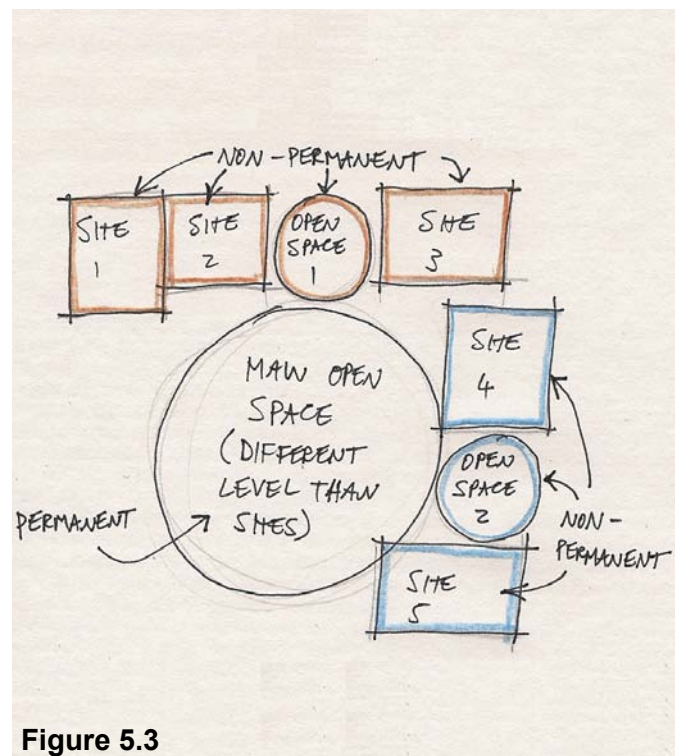 NON-PERMANENT
SITE
1
SITE
2
OPEN
SPACE
1
SITE
3
SITE
4
MAIN OPEN
SPACE
(DIFFERENT
LEVEL THAN
SITES)
PERMANENT
OPEN
SPACE
2
NON-
PERMANENT
SITE
5
Figure 5.3